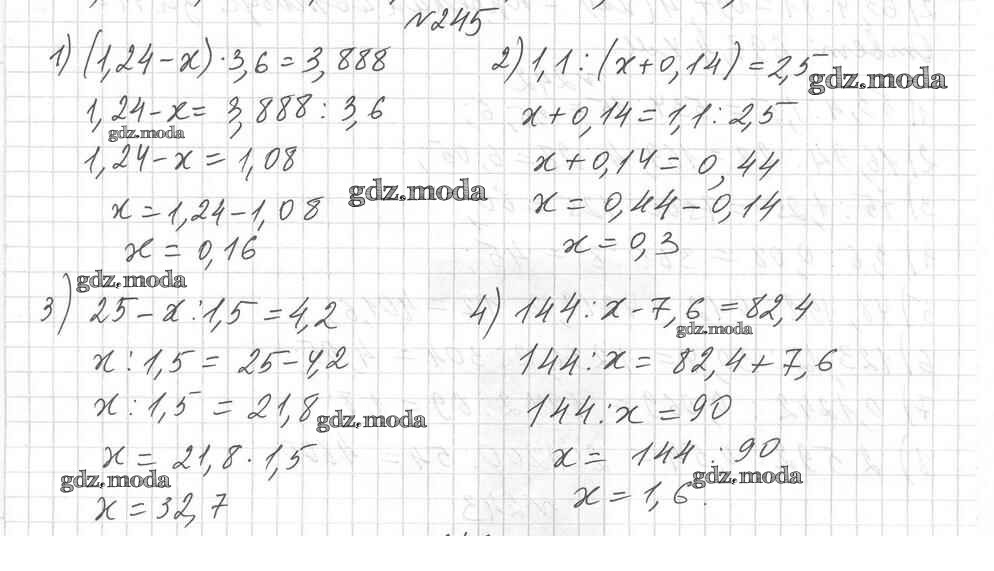 №245
1) (1,24-x)·3,6=3,888
1,24-x=3,888:3,6
gdz.moda
1,24-x=1,08
gdz.moda
x=1,24-1,08
x=0,16
2) 1,1:(x+0,14)=2,5
gdz.moda
x+0,14=1,1:2,5
x+0,14=0,44
x=0,44-0,14
x=0,3
gdz.moda
3) 25-x:1,5=4,2
x:1,5=25-4,2
x:1,5=21,8
gdz.moda
x=21,8·1,5
gdz.moda
x=32,7
4) 144:x-7,6=82,4
gdz.moda
144:x=82,4+7,6
144:x=90
x=144:90
gdz.moda
x=1,6.